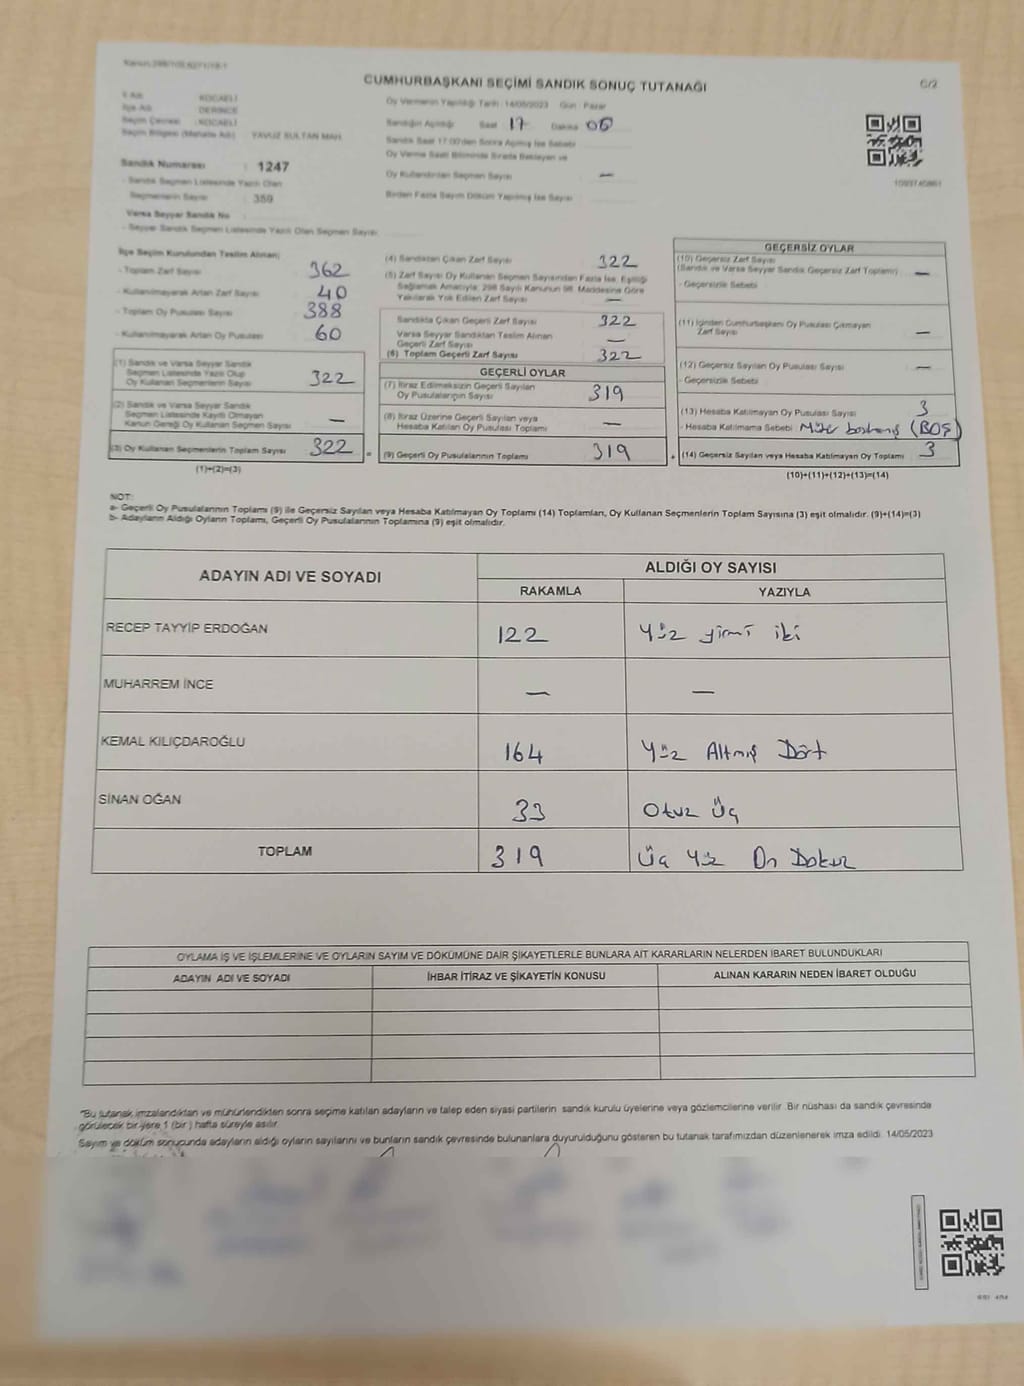 CUMHURBAŞKANI SEÇİMİ SANDIK SONUÇ TUTANAĞI
C/2
İl Adı : KOCAELİ
İlçe Adı : DERİNCE
Seçim Çevresi : KOCAELİ
Seçim Bölgesi (Mahalle Adı) : YAVUZ SULTAN MAH.
Sandık Numarası : 1247
- Sandık Seçmen Listesinde Yazılı Olan
Seçmenlerin Sayısı : 359
Varsa Seyyar Sandık No
- Seyyar Sandık Seçmen Listesinde Yazılı Olan Seçmen Sayısı
Oy Vermenin Yapıldığı Tarih : 14/05/2023 Gün : Pazar
Sandığın Açıldığı Saat 17 Dakika 06
Sandık Saat 17:00'den Sonra Açılmış İse Sebebi
Oy Verme Saati Bitiminde Sırada Bekleyen ve
Oy Kullandırılan Seçmen Sayısı —
Birden Fazla Sayım Döküm Yapılmış İse Sayısı
İlçe Seçim Kurulundan Teslim Alınan;
- Toplam Zarf Sayısı 362
- Kullanılmayarak Artan Zarf Sayısı 40
- Toplam Oy Pusulası Sayısı 388
- Kullanılmayarak Artan Oy Pusulası 60
(1) Sandık ve Varsa Seyyar Sandık
Seçmen Listesinde Yazılı Olup
Oy Kullanan Seçmenlerin Sayısı 322
(2) Sandık ve Varsa Seyyar Sandık
Seçmen Listesinde Kayıtlı Olmayan
Kanun Gereği Oy Kullanan Seçmen Sayısı —
(3) Oy Kullanan Seçmenlerin Toplam Sayısı 322
(1)+(2)=(3)
(4) Sandıktan Çıkan Zarf Sayısı 322
(5) Zarf Sayısı Oy Kullanan Seçmen Sayısından Fazla İse, Eşitliği
Sağlamak Amacıyla, 298 Sayılı Kanunun 98. Maddesine Göre
Yakılarak Yok Edilen Zarf Sayısı —
Sandıkta Çıkan Geçerli Zarf Sayısı 322
Varsa Seyyar Sandıktan Teslim Alınan
Geçerli Zarf Sayısı —
(6) Toplam Geçerli Zarf Sayısı 322
GEÇERLİ OYLAR
(7) İtiraz Edilmeksizin Geçerli Sayılan
Oy Pusulalarının Sayısı 319
(8) İtiraz Üzerine Geçerli Sayılan veya
Hesaba Katılan Oy Pusulası Toplamı —
= (9) Geçerli Oy Pusulalarının Toplamı 319
GEÇERSİZ OYLAR
(10) Geçersiz Zarf Sayısı
(Sandık ve Varsa Seyyar Sandık Geçersiz Zarf Toplamı) —
- Geçersizlik Sebebi :
(11) İçinden Cumhurbaşkanı Oy Pusulası Çıkmayan
Zarf Sayısı —
(12) Geçersiz Sayılan Oy Pusulası Sayısı —
- Geçersizlik Sebebi :
(13) Hesaba Katılmayan Oy Pusulası Sayısı 3
- Hesaba Katılmama Sebebi : (BOŞ)
+ (14) Geçersiz Sayılan veya Hesaba Katılmayan Oy Toplamı 3
(10)+(11)+(12)+(13)=(14)
NOT:
a- Geçerli Oy Pusulalarının Toplamı (9) ile Geçersiz Sayılan veya Hesaba Katılmayan Oy Toplamı (14) Toplamları, Oy Kullanan Seçmenlerin Toplam Sayısına (3) eşit olmalıdır. (9)+(14)=(3)
b- Adayların Aldığı Oyların Toplamı, Geçerli Oy Pusulalarının Toplamına (9) eşit olmalıdır.
ADAYIN ADI VE SOYADI
ALDIĞI OY SAYISI
RAKAMLA YAZIYLA
RECEP TAYYİP ERDOĞAN 122 Yüz yirmi iki
MUHARREM İNCE — —
KEMAL KILIÇDAROĞLU 164 Yüz Altmış Dört
SİNAN OĞAN 33 Otuz Üç
TOPLAM 319 Üç Yüz On Dokuz
OYLAMA İŞ VE İŞLEMLERİNE VE OYLARIN SAYIM VE DÖKÜMÜNE DAİR ŞİKAYETLERLE BUNLARA AİT KARARLARIN NELERDEN İBARET BULUNDUKLARI
ADAYIN ADI VE SOYADI İHBAR İTİRAZ VE ŞİKAYETİN KONUSU ALINAN KARARIN NEDEN İBARET OLDUĞU
*Bu tutanak imzalandıktan ve mühürlendikten sonra seçime katılan adayların ve talep eden siyasi partilerin sandık kurulu üyelerine veya gözlemcilerine verilir. Bir nüshası da sandık çevresinde
görülecek bir yere 1 (bir) hafta süreyle asılır.
Sayım ve döküm sonucunda adayların aldığı oyların sayılarını ve bunların sandık çevresinde bulunanlara duyurulduğunu gösteren bu tutanak tarafımızdan düzenlenerek imza edildi. 14/05/2023